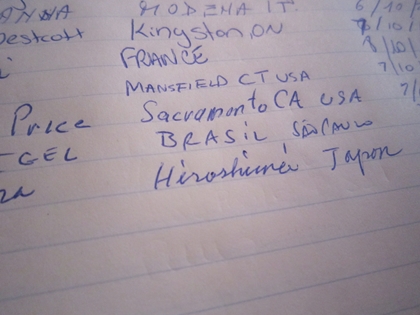 MODENA IT. 6/10/
Kingston, ON 7/10/
FRANCE 8/10/
MANSFIELD CT USA 7/10/
Price Sacramonto CA USA 7/
BRASIL São Paulo
Hiroshima Japon